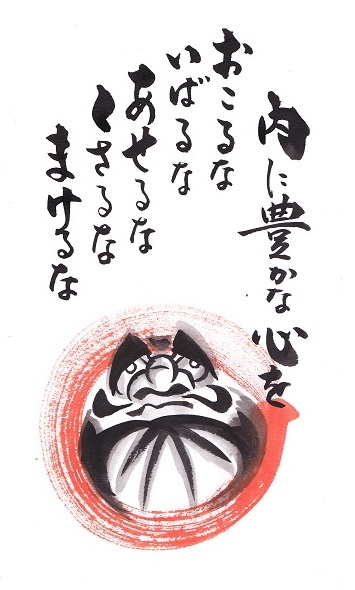 内に豊かな心を
おこるな
いばるな
あせるな
くさるな
まけるな